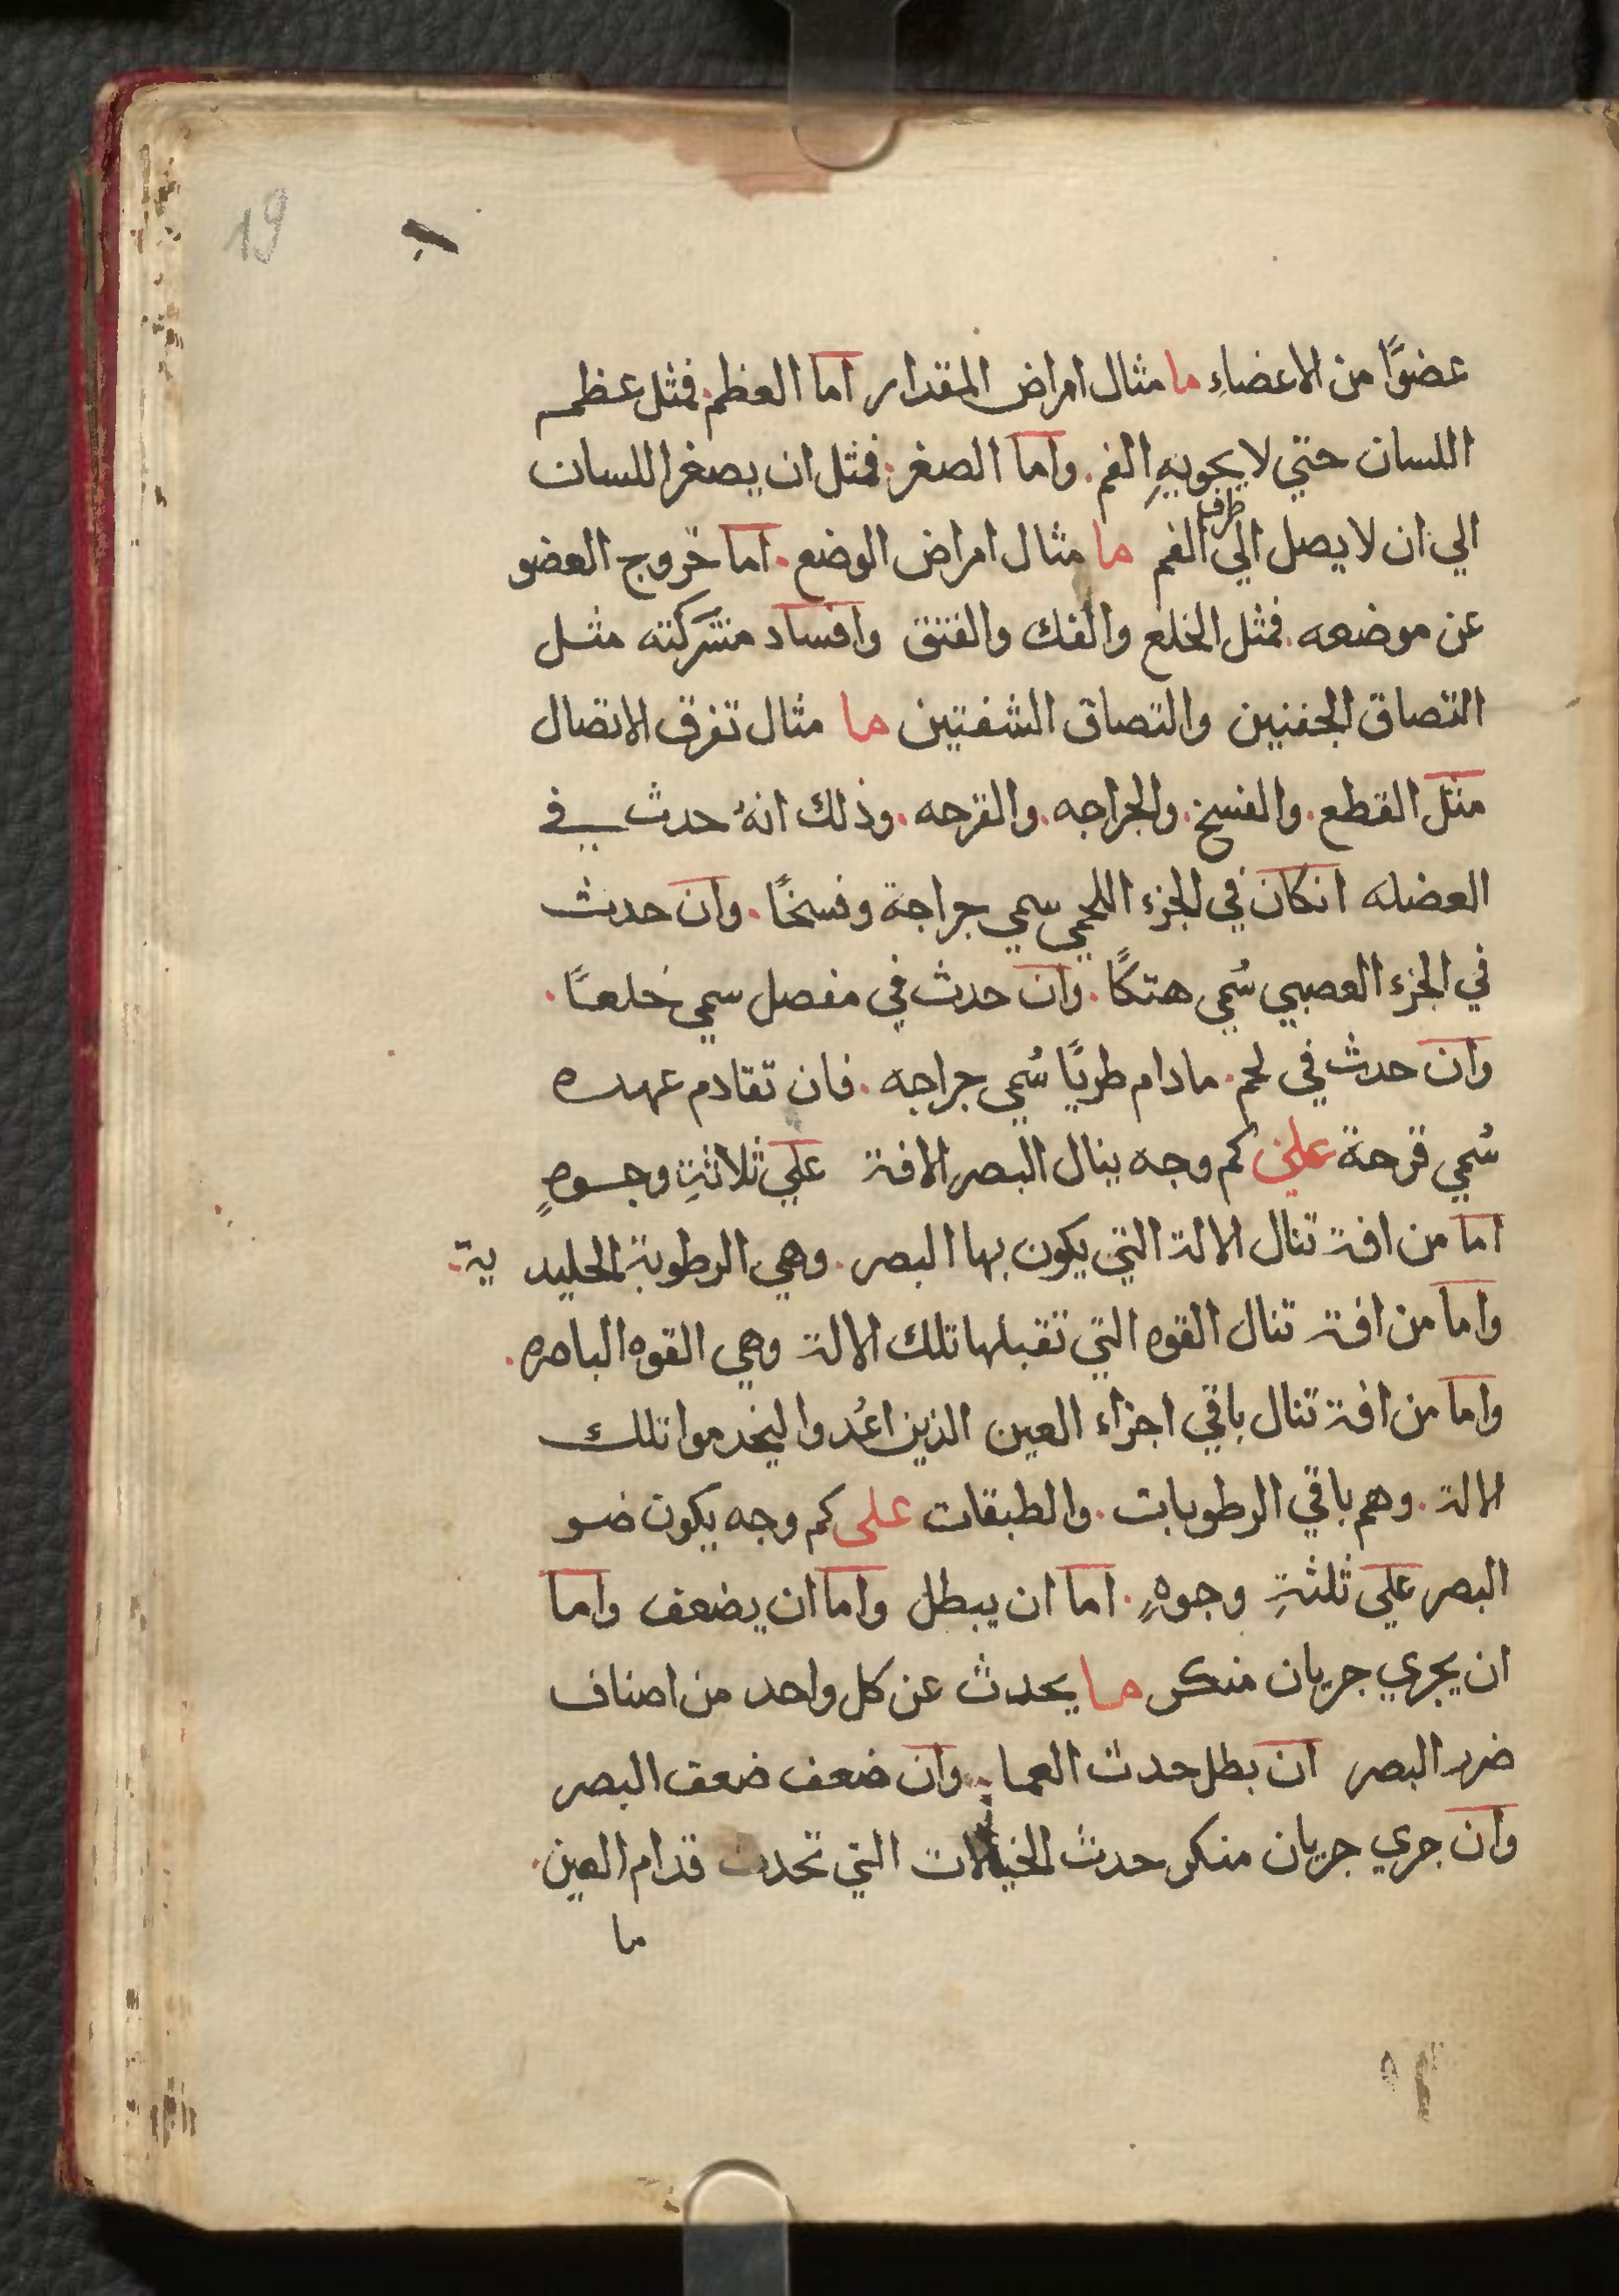 19
عضوًا من الاعضاءِ ما مثال امراض المقدار اما العظم. فمثل عظم
اللسان حتي لا يحويهِ الفم. واما الصغر. فمثل ان يصغر اللسان
الي ان لا يصل الي طرف الفم ما مثال امراض الوضع. اما خروج العضو
عن موضعه. فمثل الخلع والفك والفتق وافساد مشركته مثل
التصاق الجفنين والتصاق الشفتين ما مثال تفرق الاتصال
مثل القطع. والفسخ. والجراحه. والقرحه. وذلك انهُ حدث في
العضله انكان في الجزء اللحمي سمي جراحة وفسخًا. وان حدث
في الجزء العصبي سُمي هتكًا. وان حدث في مفصل سمي خلعـًا.
وان حدث في لحم. مادام طريًا سُمي جراحه. فان تقادم عهده
سُمي قرحة علي كم وجه ينال البصر الافة علي ثلاثةِ وجـوهٍ
اما من افة تنال الالة التي يكون بها البصر. وهي الرطوبة الجليدية.
واما من افة تنال القوه التي تقبلها تلك الالة وهي القوه الباصره.
واما من افة تنال باقي اجزاء العين الذين اعُدوا ليخدموا تلك
الالة. وهم باقي الرطوبات. والطبقات على كم وجه يكون ضو
البصر علي ثلثةِ وجوهٍ. اما ان يبطل واما ان يضعف واما
ان يجري جريان منكر ما يحدث عن كل واحد من اصناف
ضرر البصر ان بطل حدث العما. وان ضعف ضعف البصر
وان جري جريان منكر حدث الخيالات التي تحدث قدام العين.
ما